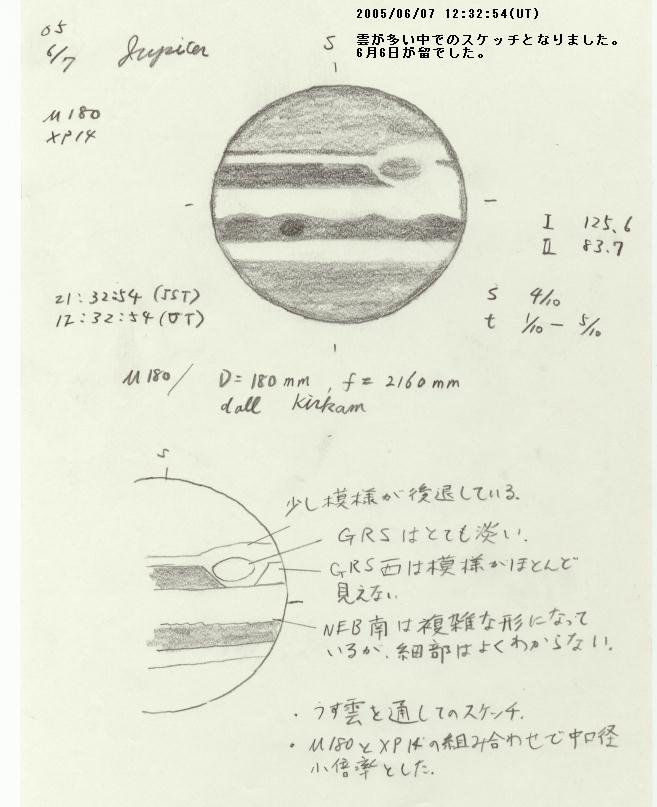 2005/06/07 12:32:54(UT)
雲が多い中でのスケッチとなりました。
6月6日が留でした。
05
6/7
Jupiter
S
M180
XP14
I 125.6
II 83.7
21:32:54 (JST)
12:32:54 (UT)
S 4/10
t 1/10 - 5/10
M180/ D=180mm, f=2160mm
dall Kirkam
S
少し模様が後退している.
GRSはとても淡い.
GRS西は模様がほとんど
見えない
NEB南は複雑な形になって
いるが、細部はよくわからない.
・うす雲を通してのスケッチ.
・M180とXP14の組み合わせで中口径
小倍率とした.